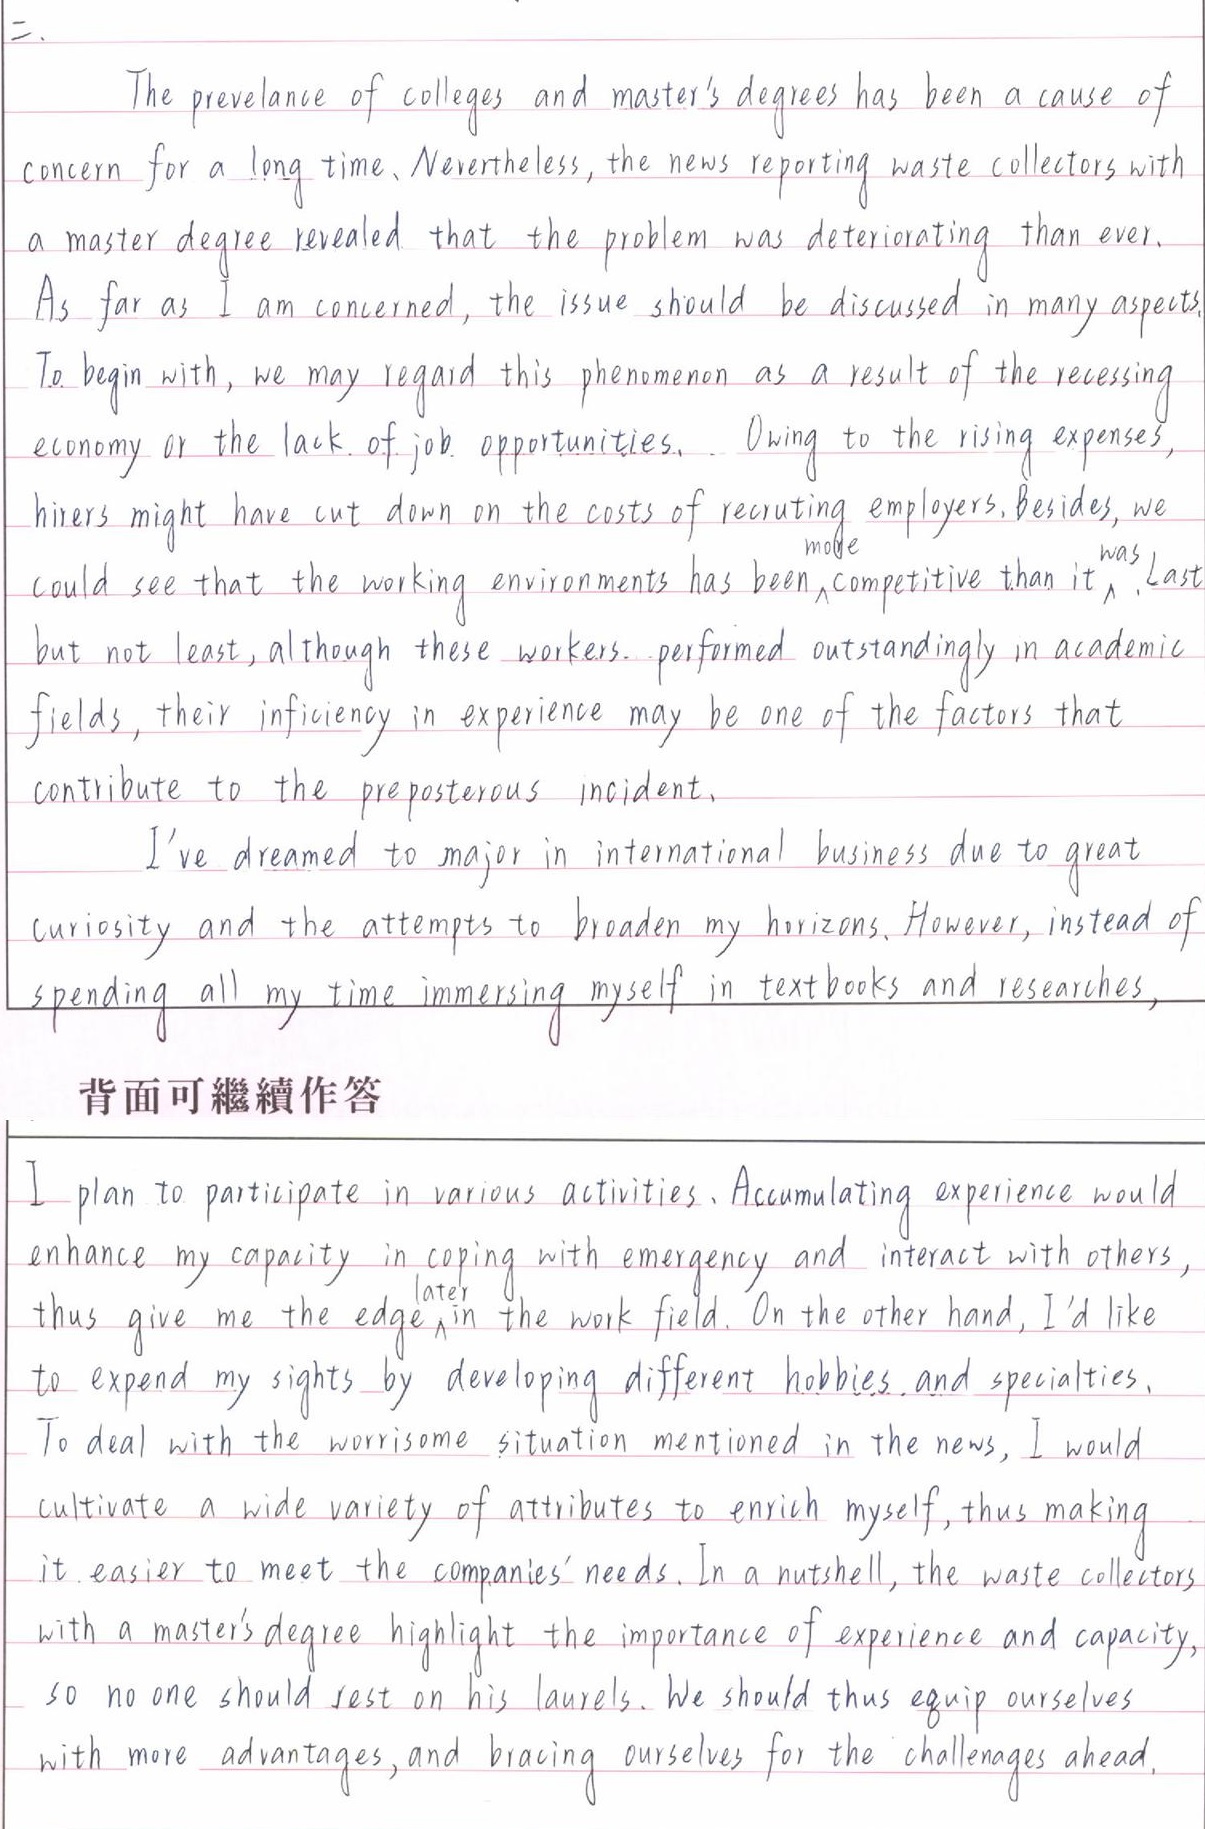 二.
The prevelance of colleges and master's degrees has been a cause of
concern for a long time. Nevertheless, the news reporting waste collectors with
a master degree revealed that the problem was deteriorating than ever.
As far as I am concerned, the issue should be discussed in many aspects.
To begin with, we may regard this phenomenon as a result of the recessing
economy or the lack of job opportunities. Owing to the rising expenses,
hirers might have cut down on the costs of recruting employers. Besides, we
could see that the working environments has been more competitive than it was. Last
but not least, although these workers performed outstandingly in academic
fields, their inficiency in experience may be one of the factors that
contribute to the preposterous incident.
I've dreamed to major in international business due to great
curiosity and the attempts to broaden my horizons. However, instead of
spending all my time immersing myself in textbooks and researches,
背面可繼續作答
I plan to participate in various activities. Accumulating experience would
enhance my capacity in coping with emergency and interact with others,
thus give me the edge later in the work field. On the other hand, I'd like
to expend my sights by developing different hobbies and specialties.
To deal with the worrisome situation mentioned in the news, I would
cultivate a wide variety of attributes to enrich myself, thus making
it easier to meet the companies' needs. In a nutshell, the waste collectors
with a master's degree highlight the importance of experience and capacity,
so no one should rest on his laurels. We should thus equip ourselves
with more advantages, and bracing ourselves for the challenages ahead.